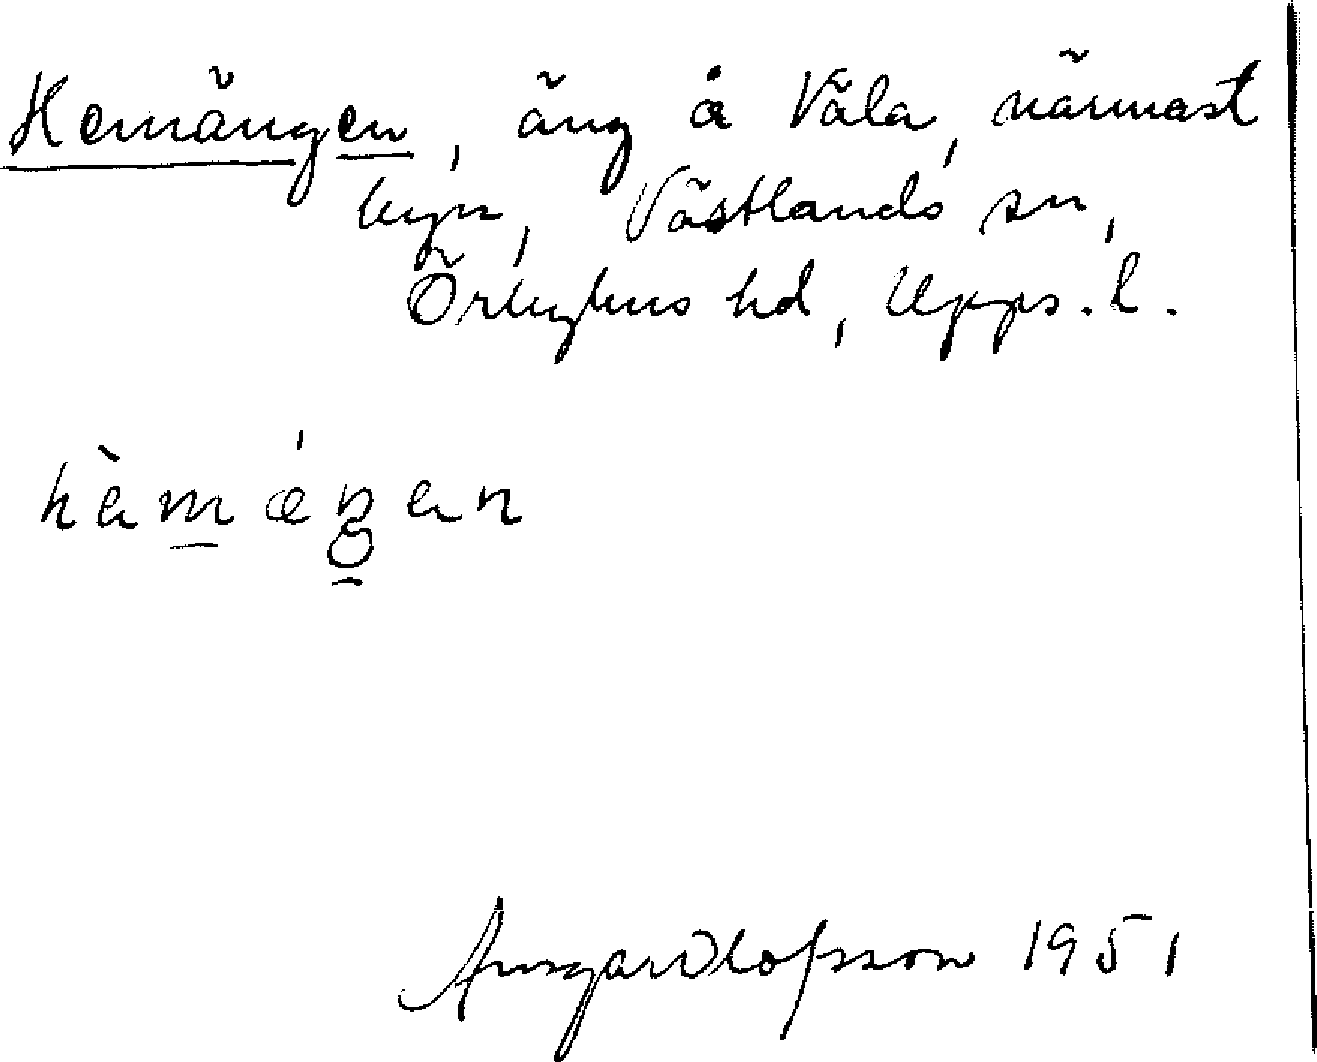 Hemängen, äng å Väla, närmast
byn, Västlands sn,
Örbyhus hd, Upps. l.
hèmǽŋen
Ansgar Olofsson 1951